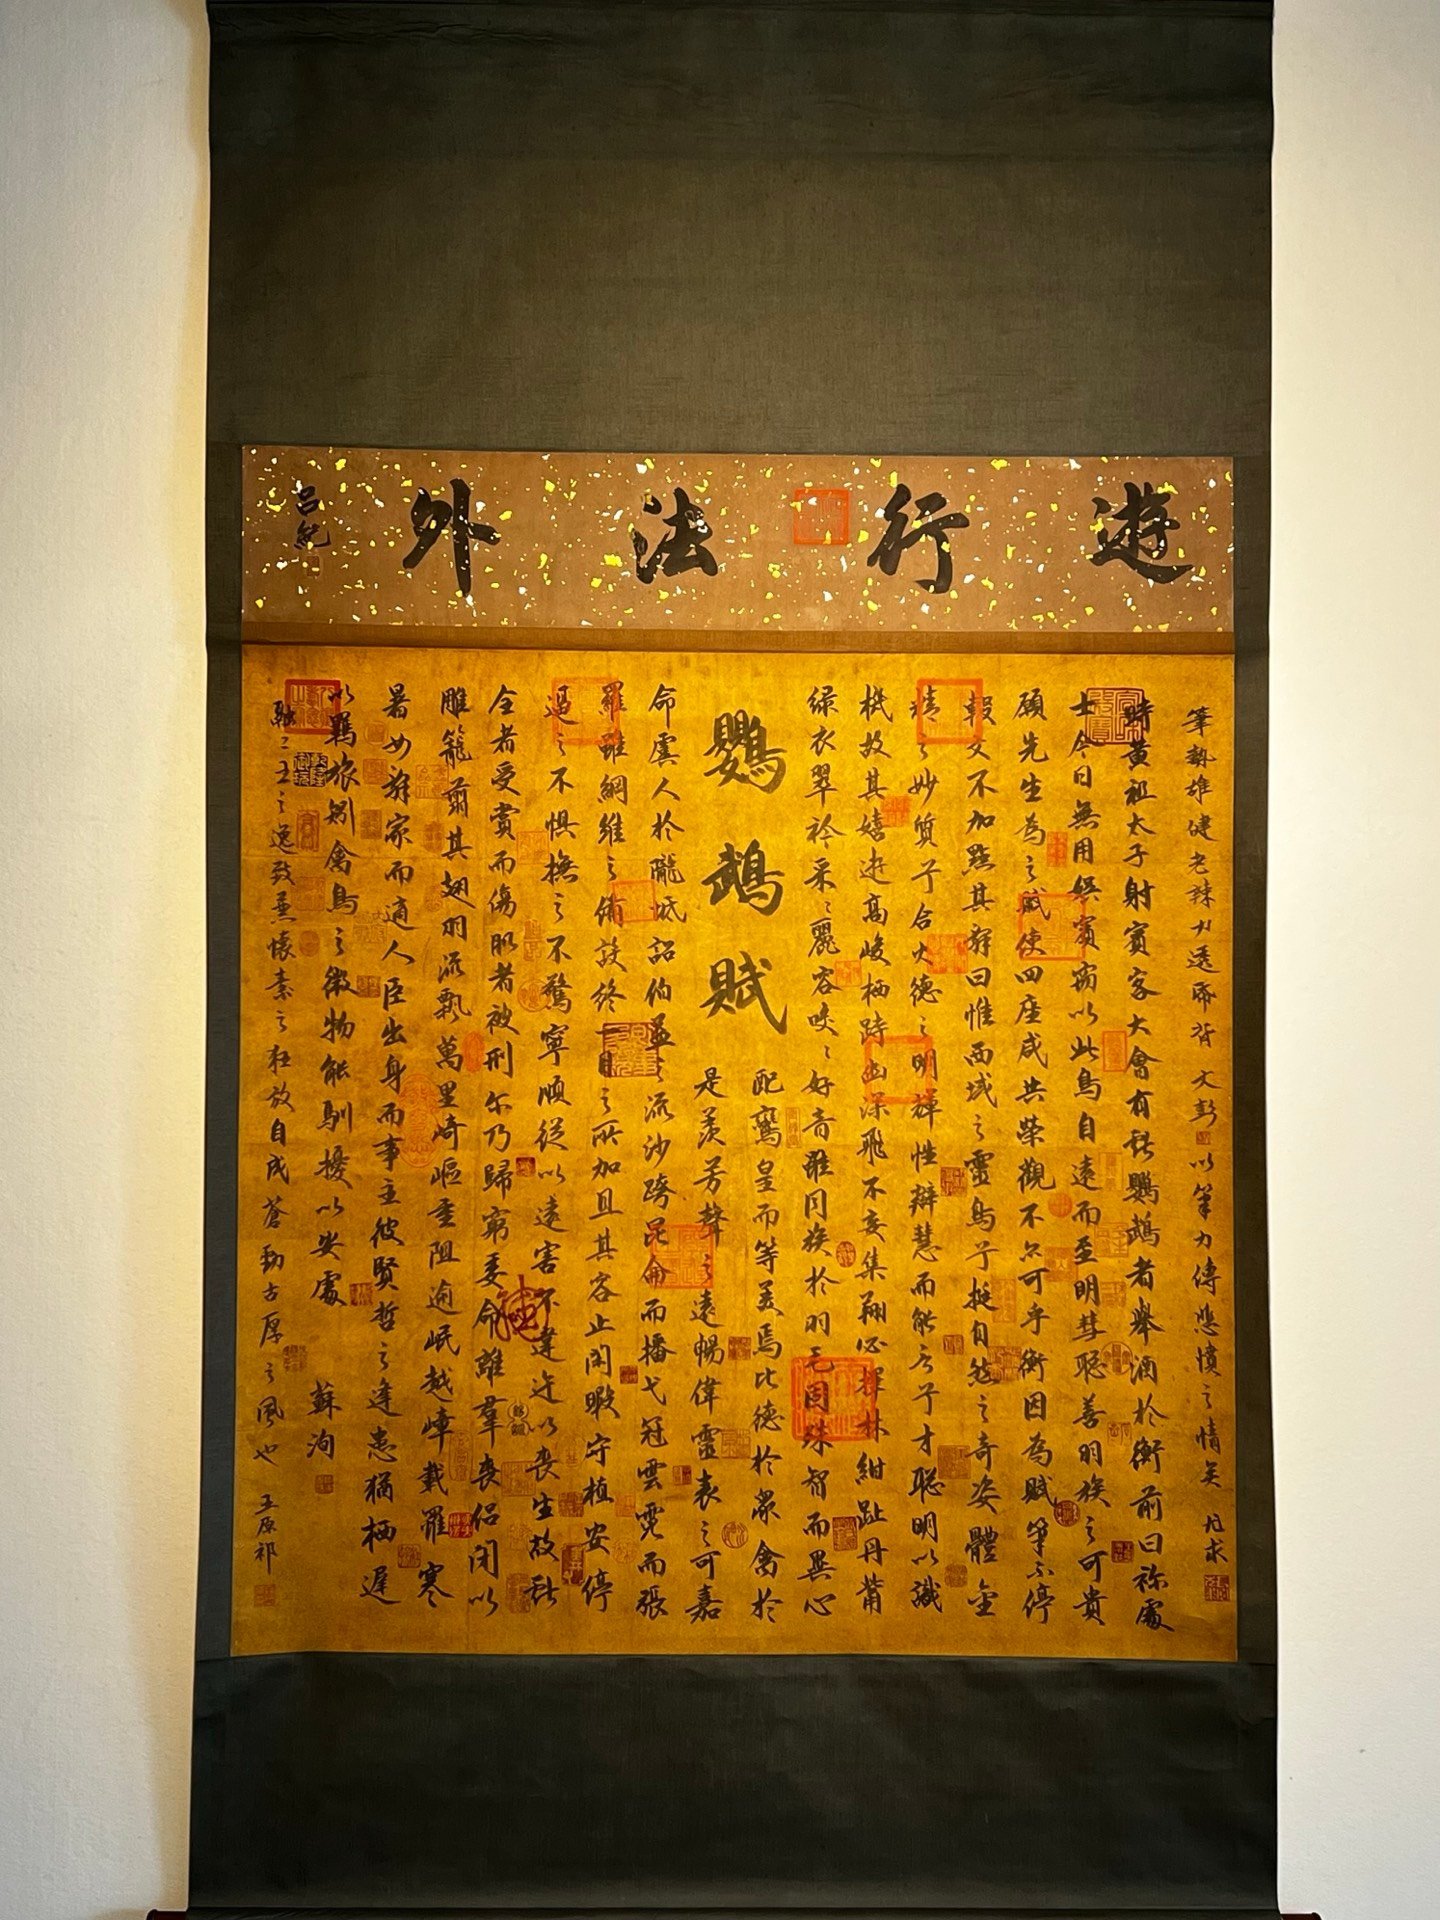 遊行法外
呂紀
筆勢雄健老辣力透紙背 文彭 以筆力傳悲憤之情矣 尤求
時黃祖太子射賓客大會有獻鸚鵡者舉酒於衡前曰祢處
士今日無用娛賓竊以此鳥自遠而至明彗聰善羽族之可貴
願先生為之賦使四座咸共榮觀不亦可乎衡因為賦筆不停
輟文不加點其辭曰惟西域之靈鳥兮挺自然之奇姿體金
精之妙質兮合火德之明輝性辯慧而能言兮才聰明以識
機故其嬉遊高峻栖跱幽深飛不妄集翔必擇林紺趾丹觜
綠衣翠衿采采麗容咬咬好音雖同族於羽毛固殊智而異心
鸚鵡賦
配鸞皇而等美焉比德於眾禽於
是羨芳聲之遠暢偉靈表之可嘉
命虞人於隴坻詔伯益於流沙跨昆侖而播弋冠雲霓而張
羅雖綱維之備設終一目之所加且其容止閑暇守植安停
逼之不懼撫之不驚寧順從以遠害不違迕以喪生故獻
全者受賞而傷肌者被刑尔乃歸窮委命離羣喪侶閉以
雕籠翦其翅羽流飄萬里崎嶇重阻逾岷越嶂載罹寒
暑女辭家而適人臣出身而事主彼賢哲之逢患猶栖遲
以羈旅矧禽鳥之微物能馴擾以安處 蘇洵
融二王之逸致兼懷素之狂放自成蒼勁古厚之風也 王原祁